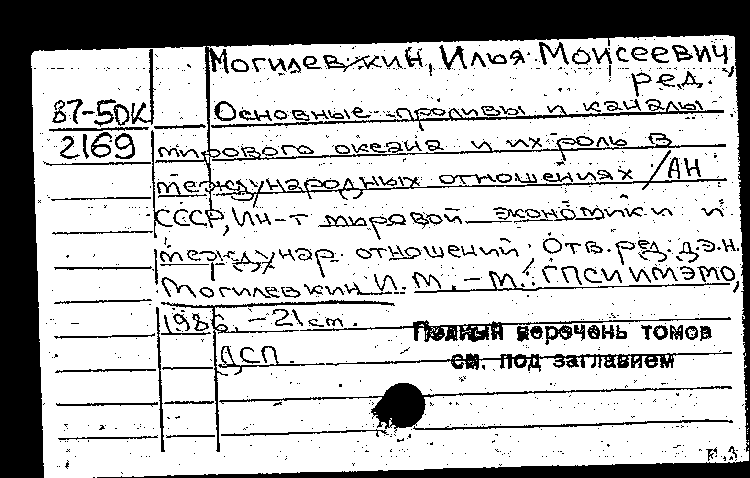 Могилевкин, Илья Моисеевич,
ред.
87-5DK
2169
Основные проливы и каналы
мирового океана и их роль в
международных отношениях /АН
СССР, Ин-т мировой экономики и
междунар. отношений; Отв. ред. д.э.н.
Могилевкин И.М. - М.: ГПСИ ИМЭМО,
1986. - 21 см.
Полный перечень томов
ДСП.
см. под заглавием